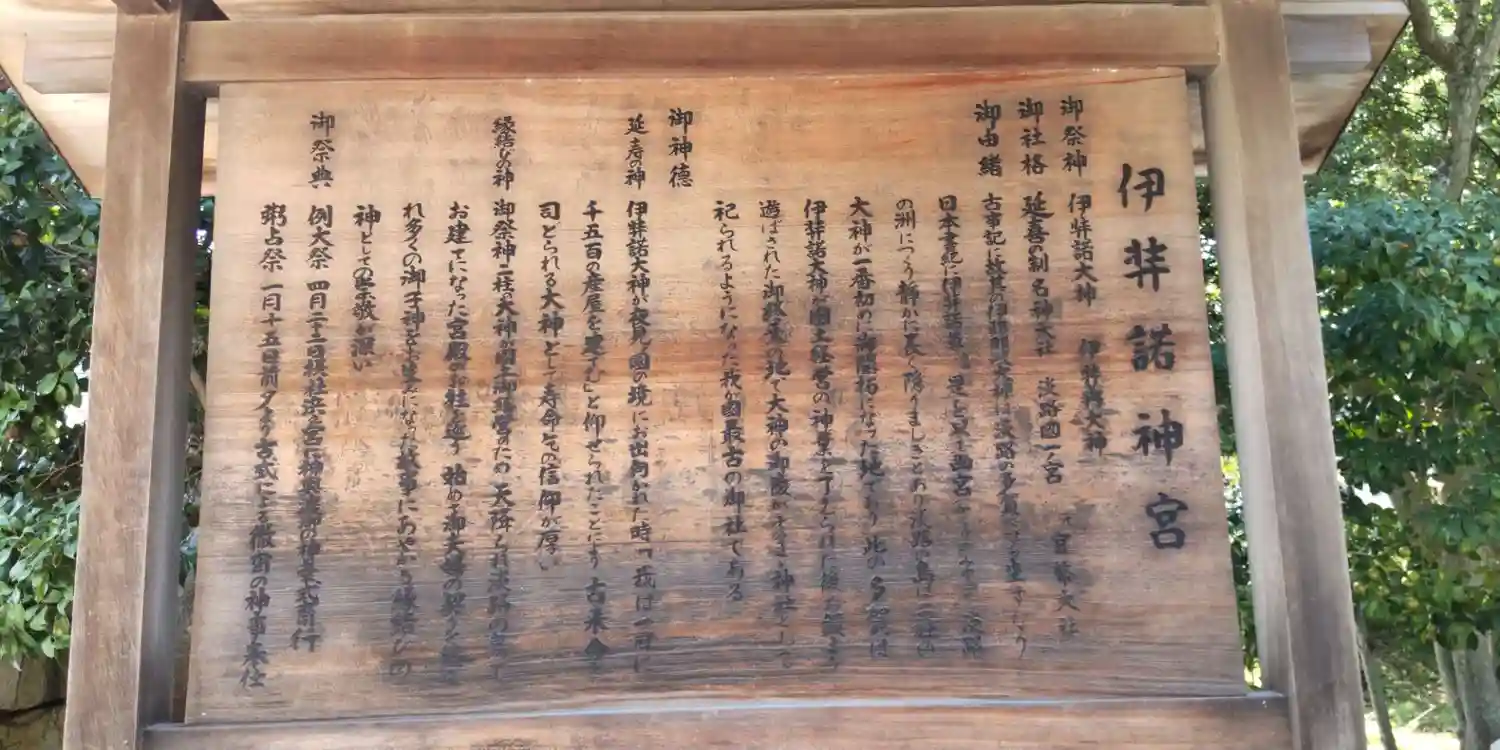 伊弉諾神宮
御祭神 伊弉諾大神 伊弉冉大神
御社格 延喜の制 名神大社 淡路國一ノ宮 官幣大社
御由緒 古事記には 淡路の多賀
日本書紀に伊弉諾尊 是を以て幽宮
の洲につくり静かに長く隠りましきとあり 淡路の島は二柱の
大神が一番初めに御開拓になった地であり此の多賀は
伊弉諾大神が國土経営の神業を了えられた後
遊ばされた御終焉の地で大神の御陵がそのまゝ神社として
祀られるようになった我が國最古の御社である
御神徳
延寿の神 伊弉諾大神が夜見國の境にお出向かれた時「我は一日に
千五百の産屋を建てむ」と仰せられたことにより 古来命を
司どられる大神として寿命乞の信仰が厚い
縁結びの神 御祭神二柱の大神が國土御経営のため 天降られ淡路の
お建てになった宮殿のお柱を廻り 始めて御夫婦の契りを
れ多くの御子神をお生みになった故事にあやかる縁結びの
神としての崇敬が深い
御祭典 例大祭 四月二十二日 神輿渡御の神幸式斎行
粥占祭 一月十五日前夕より古式による 神事奉仕